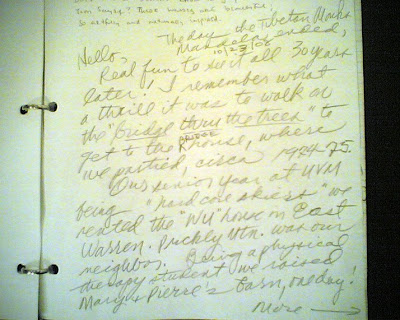 from Sunray? These
So
The day the Tibetan Monks
Mandella ended,
10/23/06
Hello,
Real fun to see it all 30 years
later! I remember what
a thrill it was to walk on
the "bridge thru the trees" to
get to the BRIDGE house, where
we partied, circa 1974-75.
Our senior year at UVM
being "hard core skiers" we
rented the "Wu" house on East
Warren. Prickly Mtn. was our
neighbor. Being a physical
therapy student we raised
Mary & Pierre's barn, one day!
More →